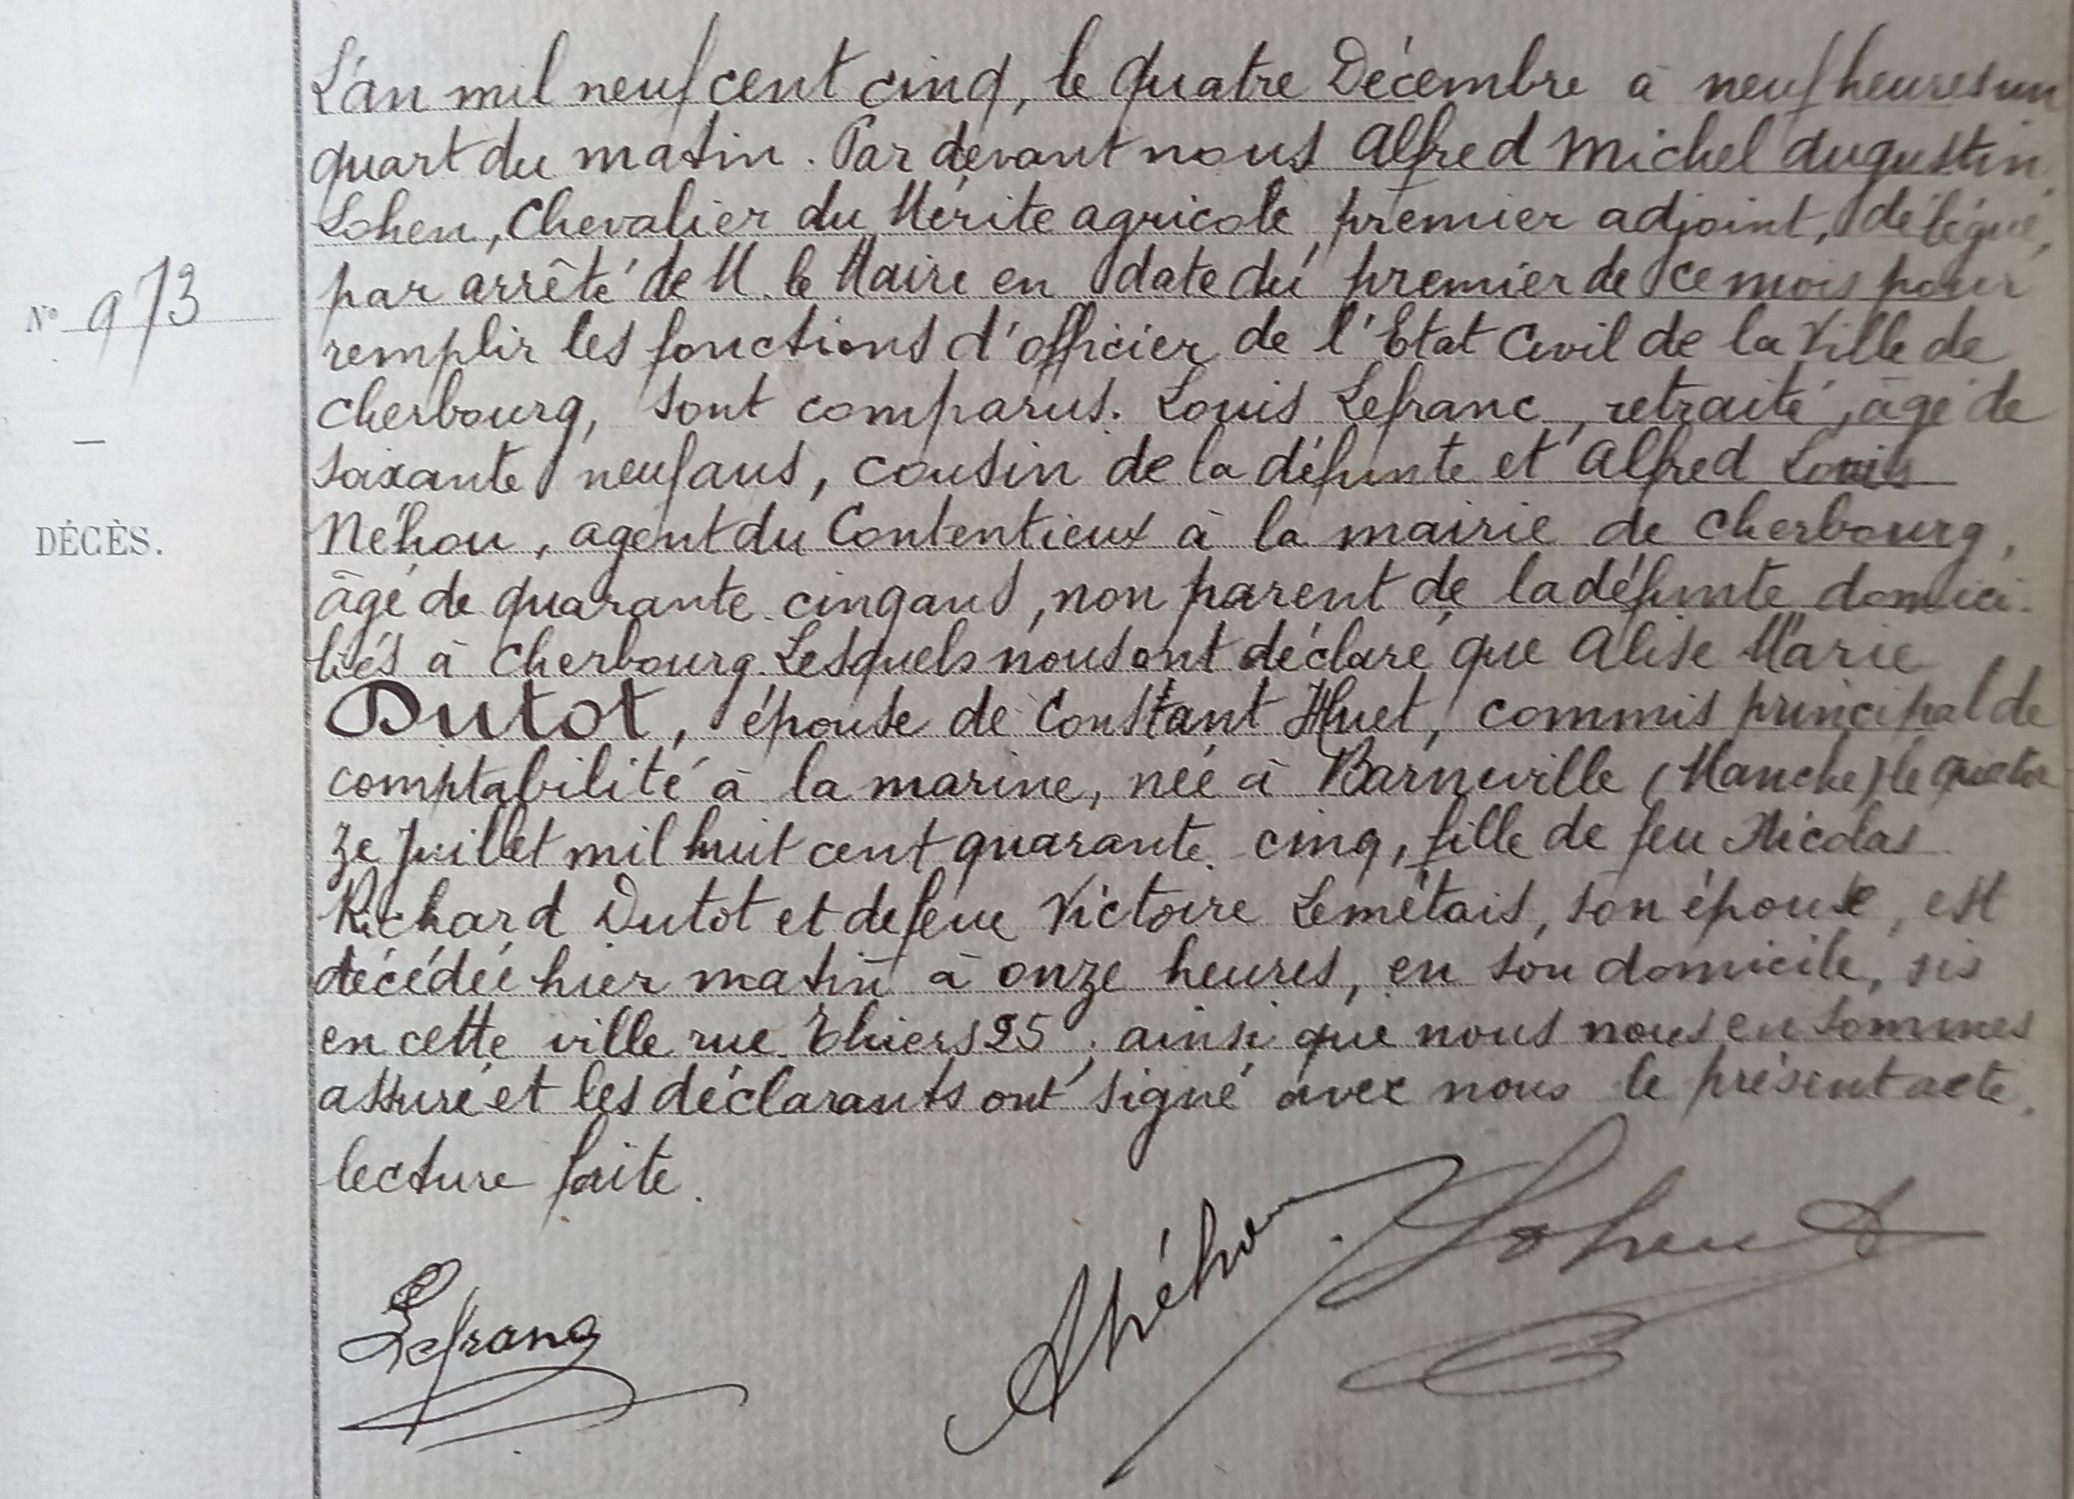 L'an mil neuf cent cinq, le quatre Décembre à neuf heures un
quart du matin. Par devant nous Alfred Michel Augustin
Lohen, Chevalier du Mérite agricole, premier adjoint, délégué,
par arrêté de M. le Maire en date du premier de ce mois pour
Nº 973
remplir les fonctions d'officier de l'Etat Civil de la Ville de
Cherbourg, sont comparus. Louis Lefranc, retraité, âgé de
soixante neuf ans, cousin de la défunte et Alfred Louis
Néhou, agent du Contentieux à la mairie de Cherbourg,
DÉCÈS.
âgé de quarante cinq ans, non parent de la défunte domici-
liés à Cherbourg. Lesquels nous ont déclaré que Alise Marie
Dutot, épouse de Constant Huet, commis principal de
comptabilité à la marine, née à Barneville (Manche) le quator
ze Juillet mil huit cent quarante cinq, fille de feu Nicolas
Richard Dutot et de feue Victoire Lemétais, son épouse, est
décédée hier matin à onze heures, en son domicile, sis
en cette ville rue Thiers 25, ainsi que nous nous en sommes
assuré et les déclarants ont signé avec nous le présent acte,
lecture faite.
Lefranc
ANéhou
Lohen